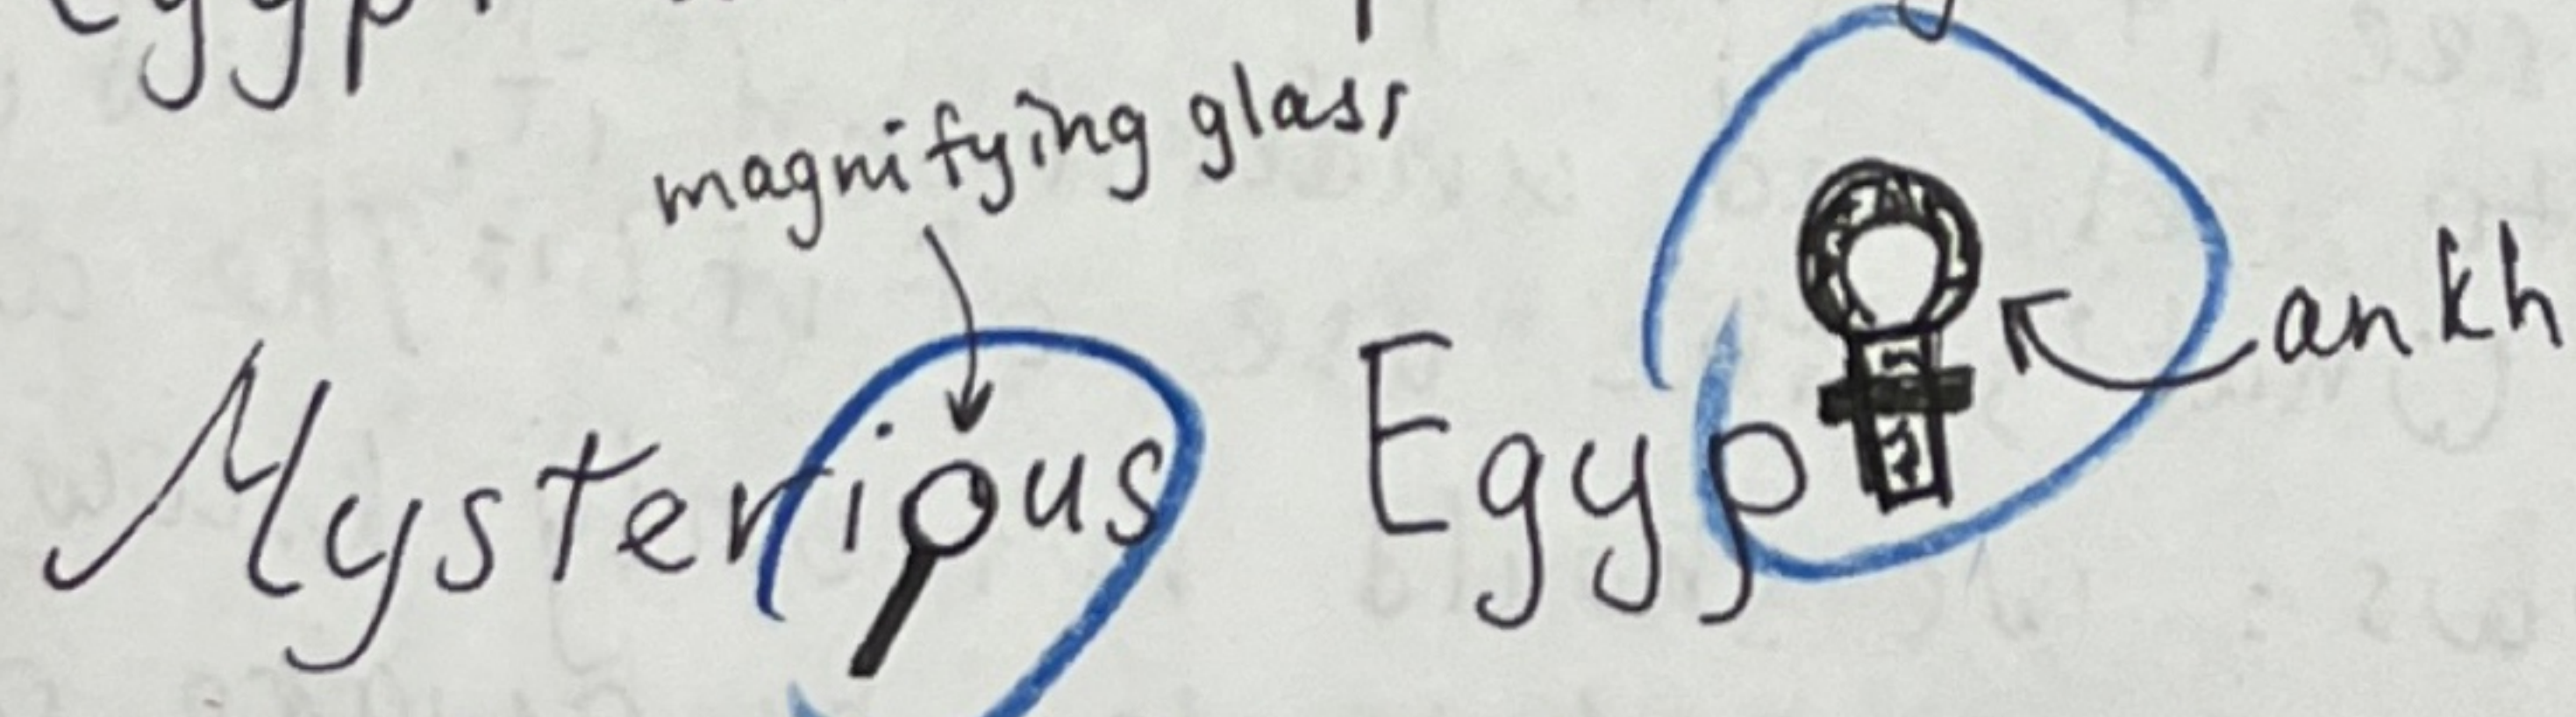 Egypt
magnifying glass
ankh
Mysterious Egypt